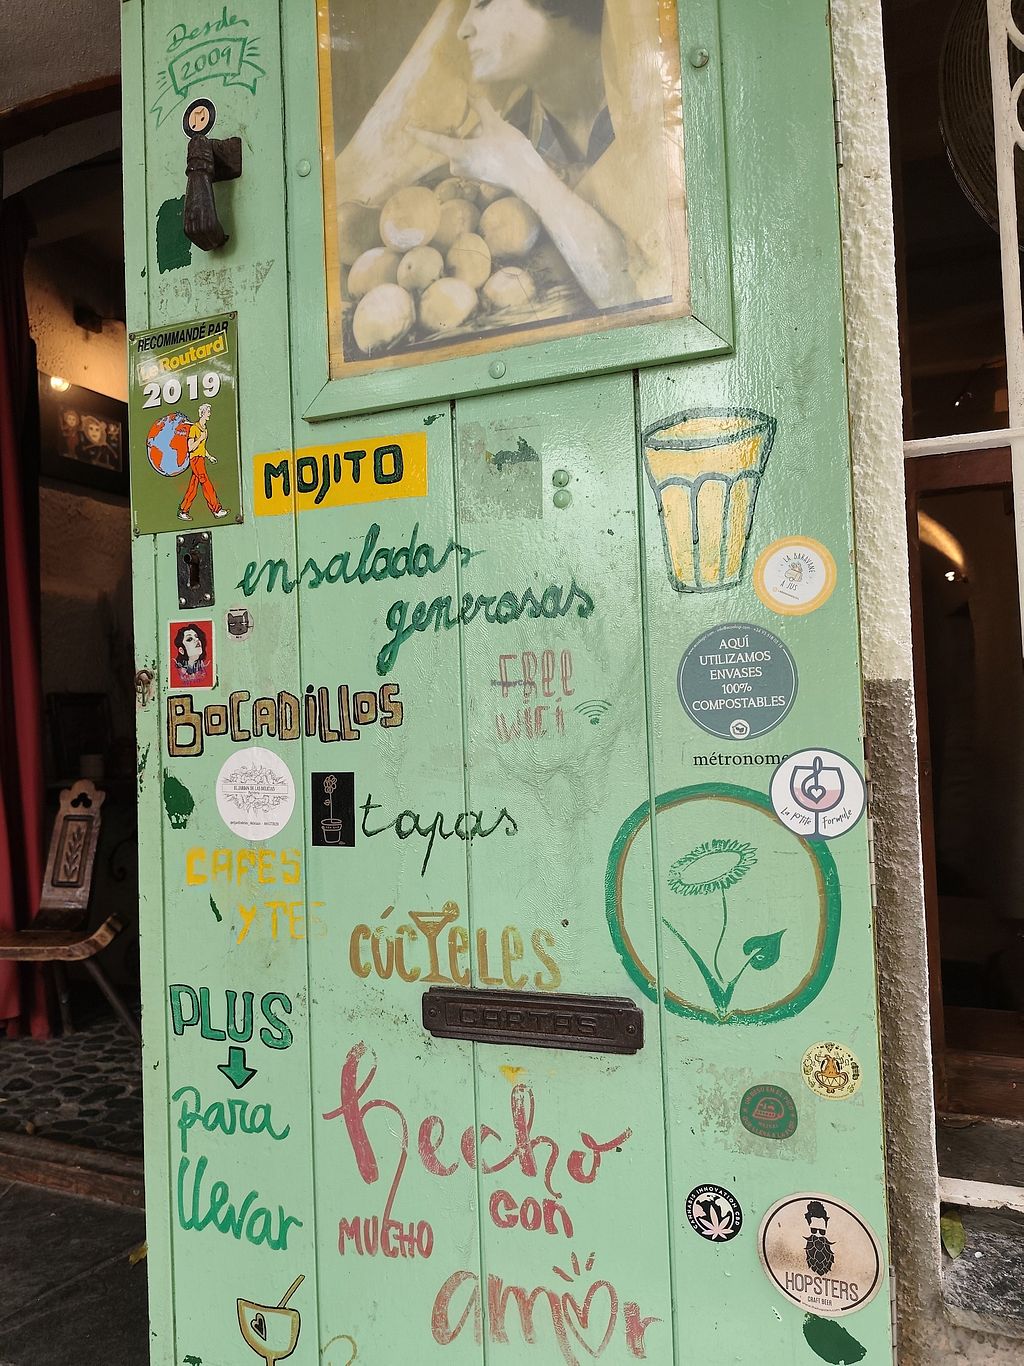 Desde
2009
RECOMMANDÉ PAR
Le Routard
2019
MOJITO
ensaladas
generosas
LA CARAVANE
À JUS
FREE
WiFi
AQUÍ
UTILIZAMOS
ENVASES
100%
COMPOSTABLES
BOCADILLOS
métronome
La p'tite Formule
EL JARDIN DE LAS DELICIAS
tapas
CAFES
Y TES
CÓCTELES
CARTAS
PLUS
para
llevar
hecho
con
MUCHO
amor
CANNABIS INNOVATION CBD
HOPSTERS
CRAFT BEER